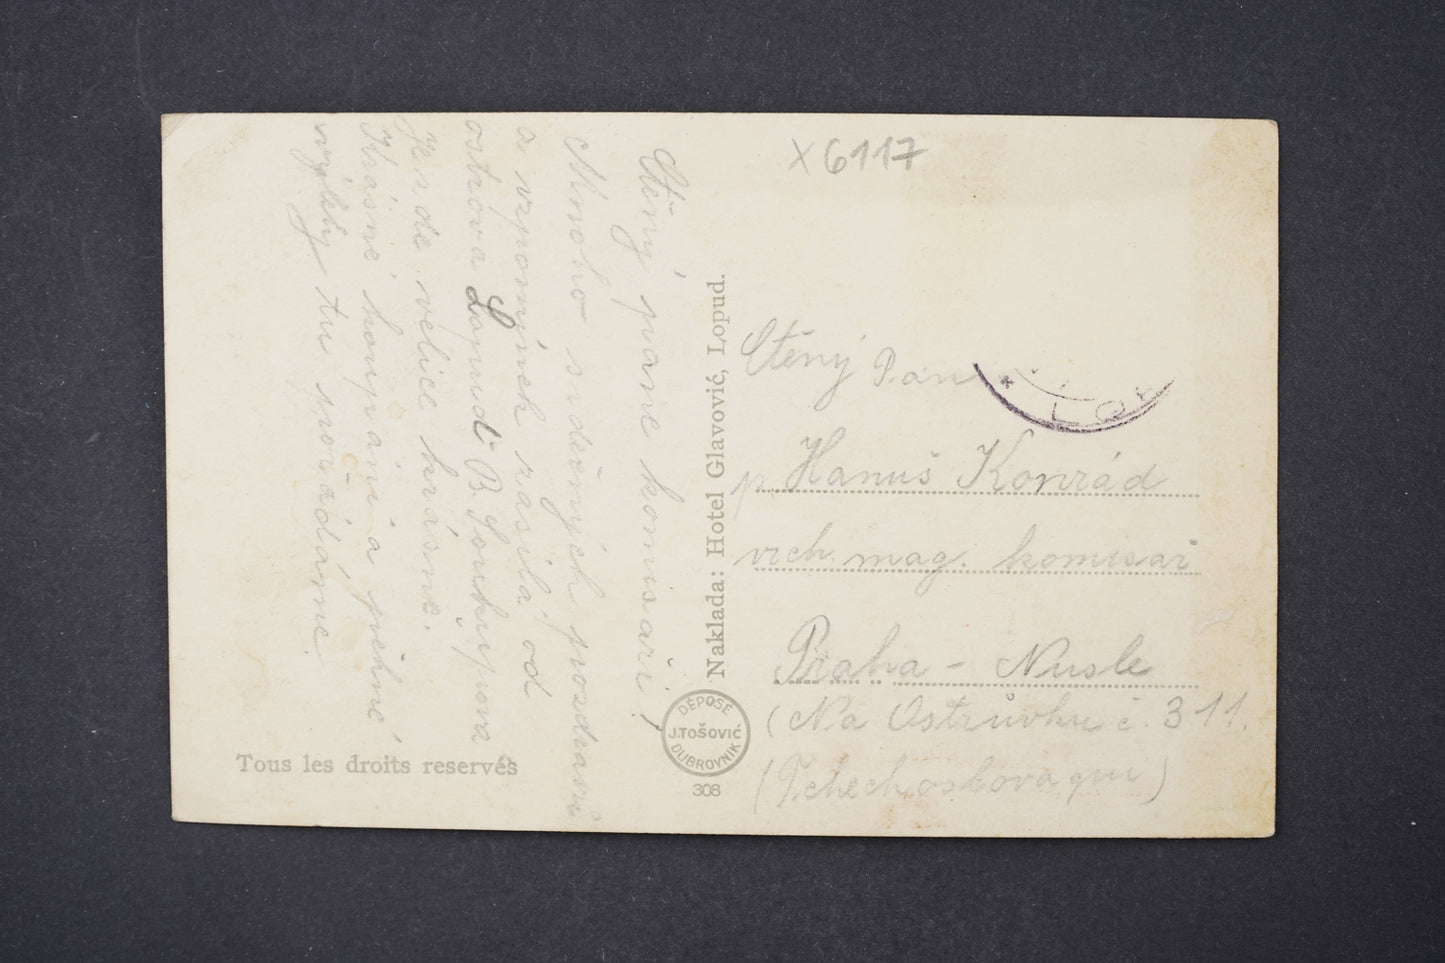 Ctěný pane komisaři!
Mnoho srdečných pozdravů
a vzpomínek zasílá od
ostrova Lopud B. Soukupova
Je zde velice krásně.
Krásné koupání a pěkné
výlety tu pořádáme.
Tous les droits reservés
Naklada: Hotel Glavović, Lopud.
DÉPOSÉ
J. TOŠOVIĆ
DUBROVNIK
308
X 6117
Ctěný Pan
p. Hanuš Konrád
vrch. mag. komisař
Praha - Nusle
(Na Ostrůvku č. 311.
(Tchechoslovaqui)